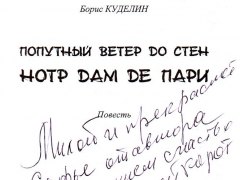 Борис КУДЕЛИН
ПОПУТНЫЙ ВЕТЕР ДО СТЕН
НОТР ДАМ ДЕ ПАРИ
Повесть
Милой и прекрасной
от автора
счастья